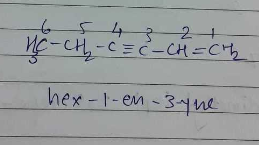 6 5 4 3 2 1
H₃C-CH₂-C≡C-CH=CH₂
hex-1-en-3-yne